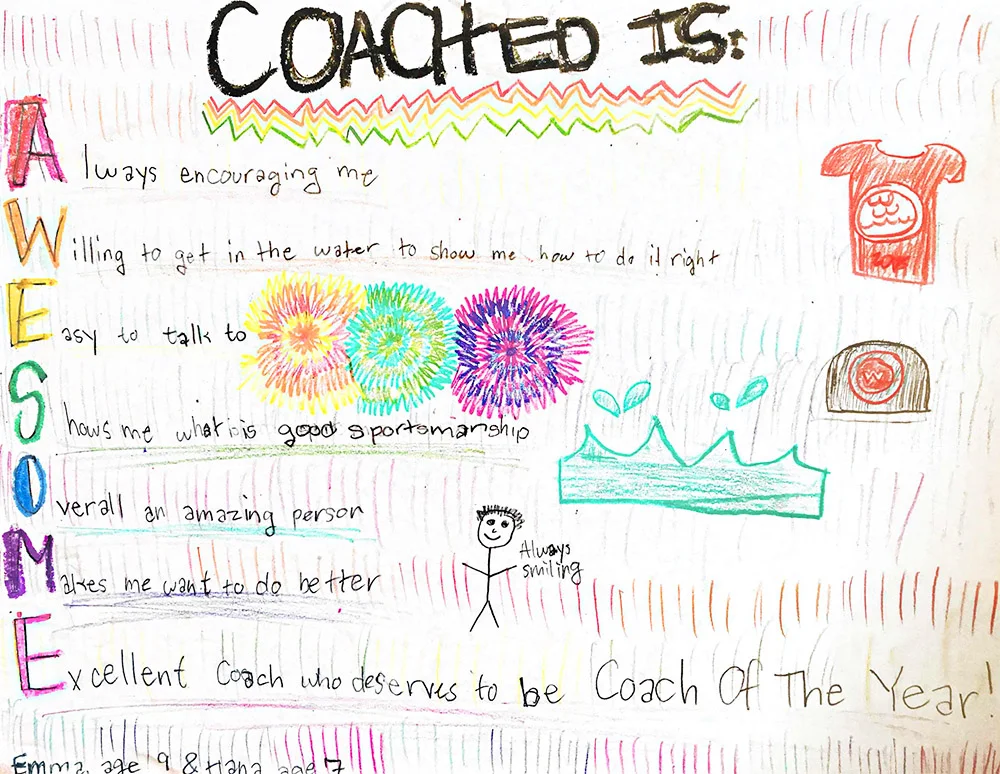 COACHED IS:
Always encouraging me
Willing to get in the water to show me how to do it right
Easy to talk to
Shows me what is good sportsmanship
W
Overall an amazing person
Always
smiling
Makes me want to do better
Excellent Coach who deserves to be Coach Of The Year!
Emma, age 9 & Hana, age 7